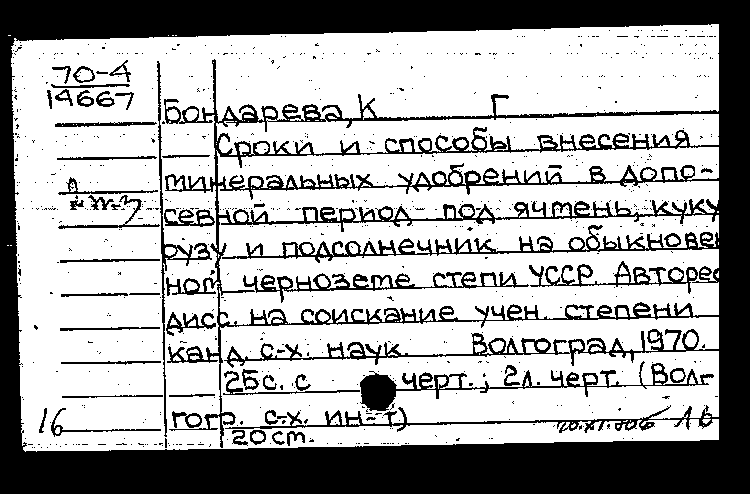 70-4
14667
Бондарева, К Г
Сроки и способы внесения
минеральных удобрений в допо-
севной период под ячмень, куку
рузу и подсолнечник на обыкновен
ном черноземе степи УССР. Авторес
дисс. на соискание учен. степени
канд. с-х. наук. Волгоград, 1970.
25с. с черт.; 2л. черт. (Волг-
гогр. с-х. ин-т)
20 cm.
16
16